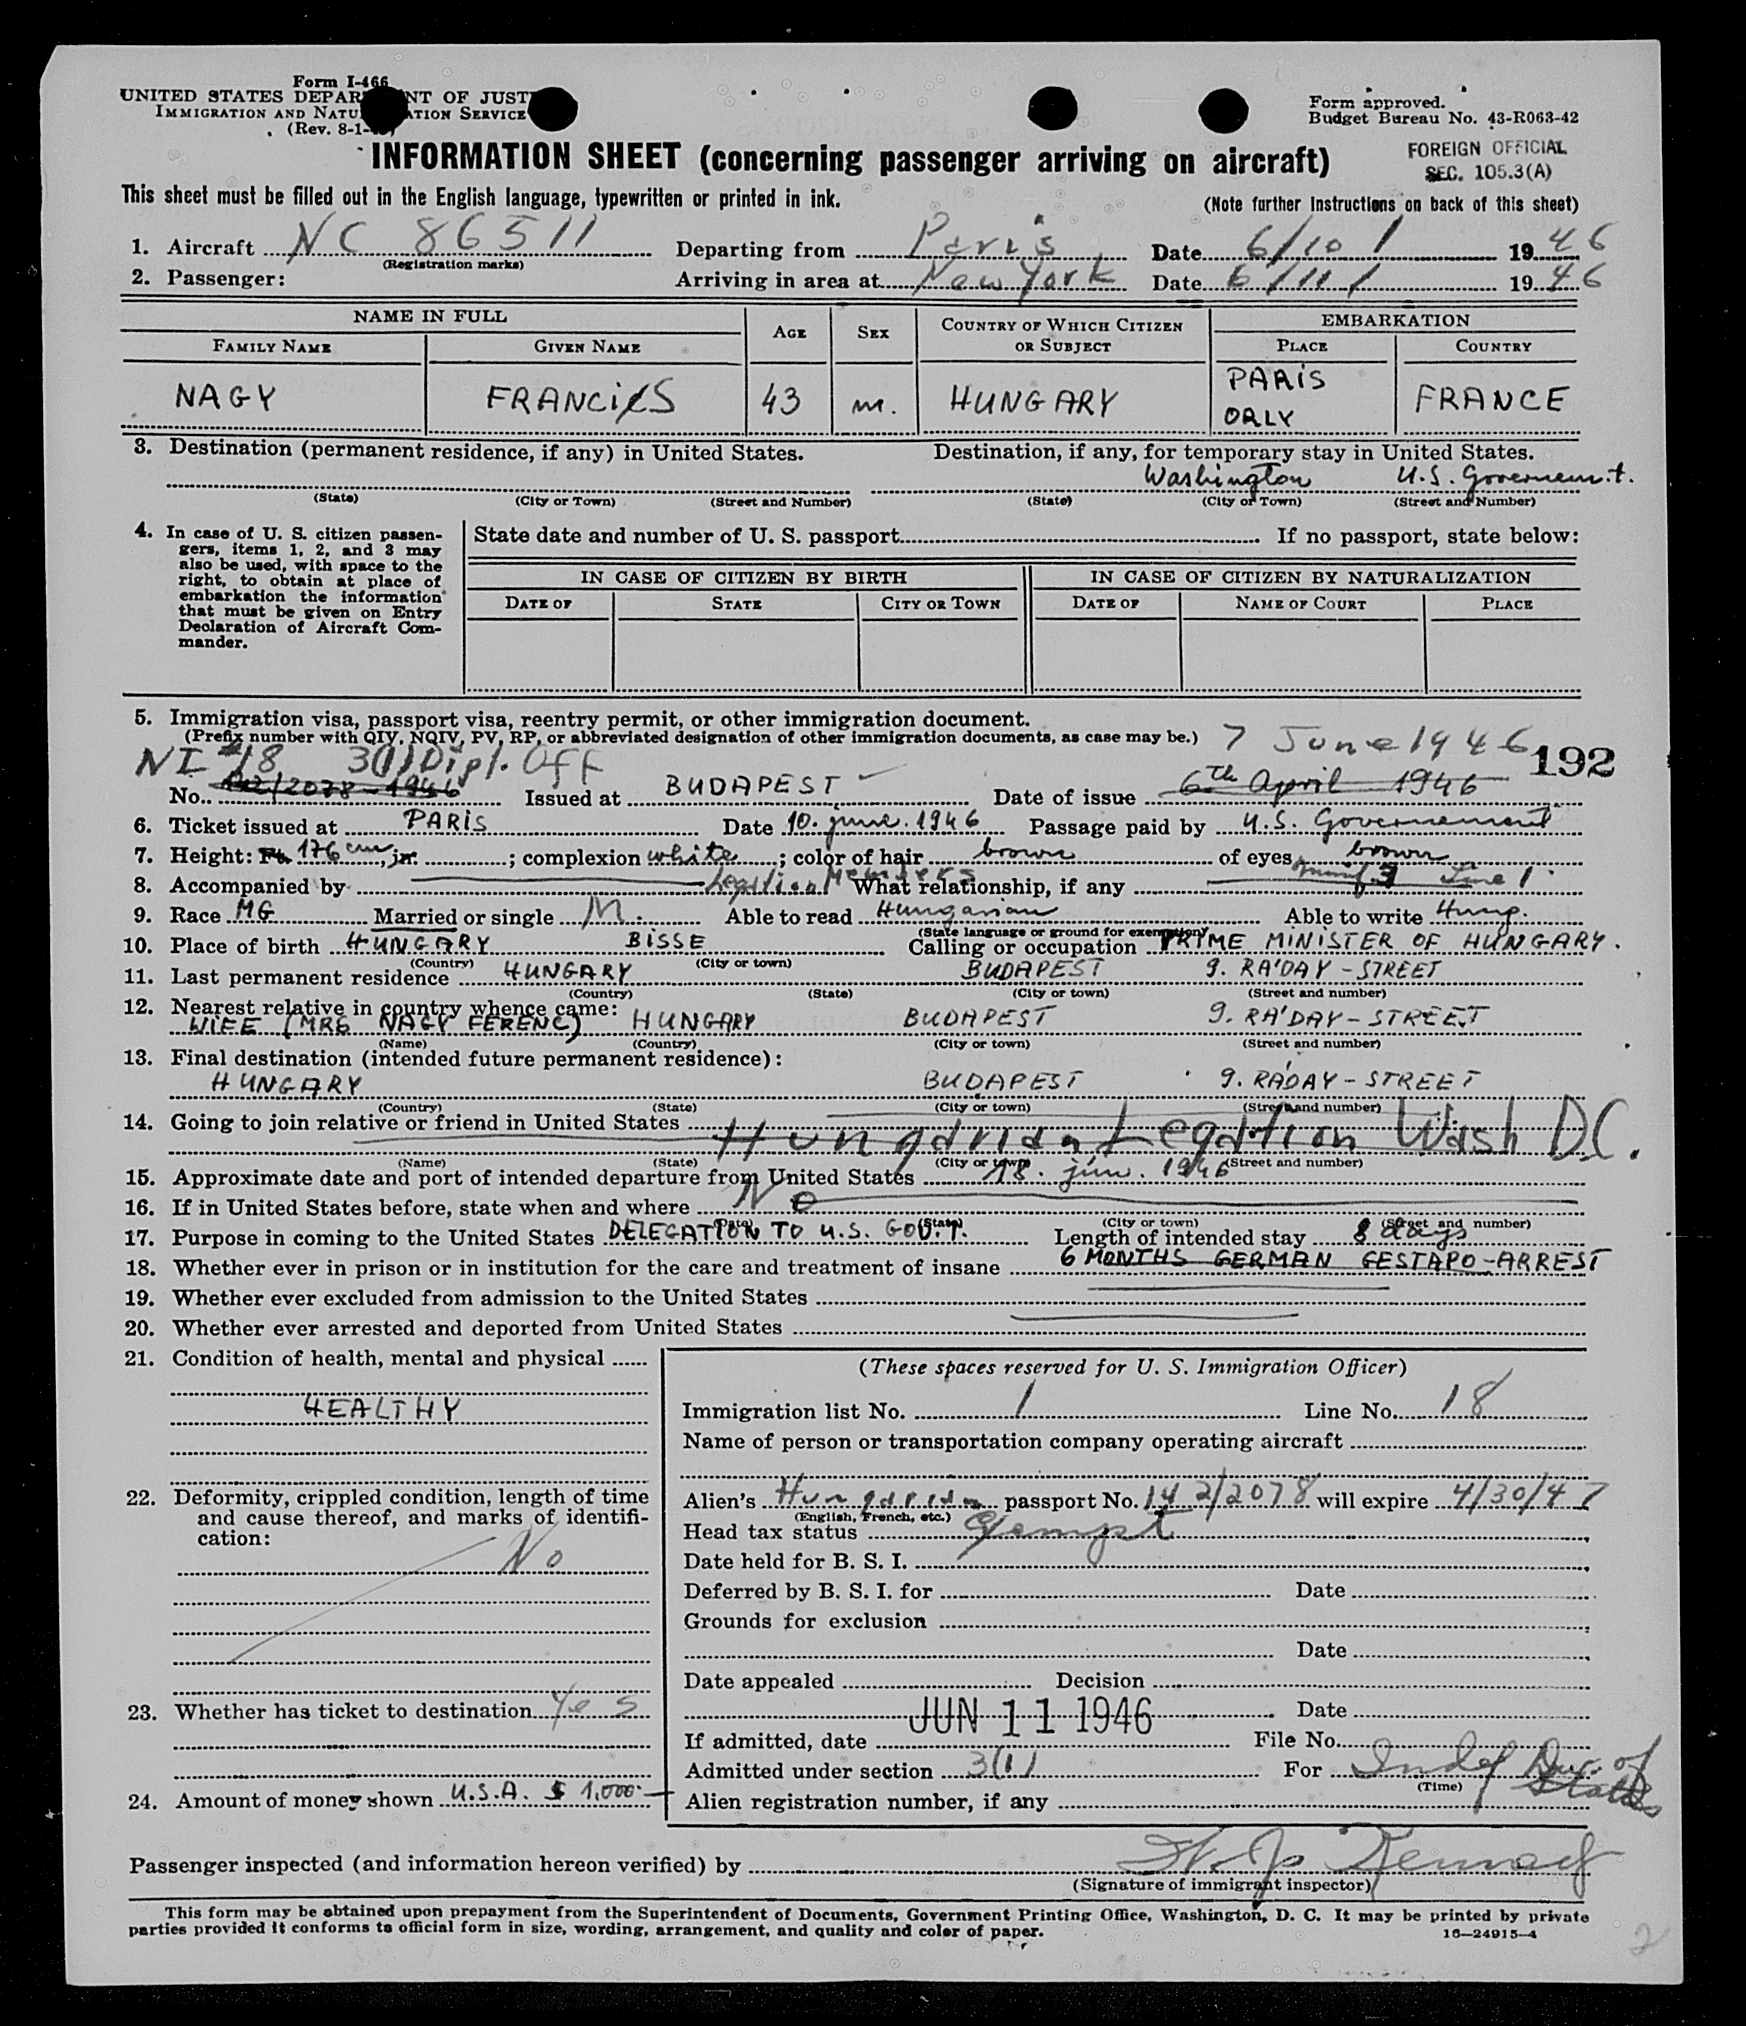 Form I-466
UNITED STATES DEPARTMENT OF JUSTICE
IMMIGRATION AND NATURALIZATION SERVICE
(Rev. 8-1-
Form approved.
Budget Bureau No. 43-R063-42
INFORMATION SHEET (concerning passenger arriving on aircraft)
FOREIGN OFFICIAL
SEC. 105.3(A)
This sheet must be filled out in the English language, typewritten or printed in ink.
(Note further instructions on back of this sheet)
1. Aircraft NC 86511 Departing from Paris Date 6/10/ 1946
(Registration marks)
2. Passenger: Arriving in area at New York Date 6/11/ 1946
NAME IN FULL AGE SEX COUNTRY OF WHICH CITIZEN OR SUBJECT EMBARKATION
FAMILY NAME GIVEN NAME PLACE COUNTRY
NAGY FRANCIS 43 m. HUNGARY PARIS ORLY FRANCE
3. Destination (permanent residence, if any) in United States. Destination, if any, for temporary stay in United States.
Washington U.S. Governem.t.
(State) (City or Town) (Street and Number) (State) (City or Town) (Street and Number)
4. In case of U. S. citizen passen-
gers, items 1, 2, and 3 may
also be used, with space to the
right, to obtain at place of
embarkation the information
that must be given on Entry
Declaration of Aircraft Com-
mander.
State date and number of U. S. passport If no passport, state below:
IN CASE OF CITIZEN BY BIRTH IN CASE OF CITIZEN BY NATURALIZATION
DATE OF STATE CITY OR TOWN DATE OF NAME OF COURT PLACE
5. Immigration visa, passport visa, reentry permit, or other immigration document.
(Prefix number with QIV, NQIV, PV, RP, or abbreviated designation of other immigration documents, as case may be.) 7 June 1946
NI #18 3(1) Dipl. Off 192
No. 142/2078-1946 Issued at BUDAPEST Date of issue 6th April 1946
6. Ticket issued at PARIS Date 10. june. 1946 Passage paid by U.S. Governement
7. Height: Ft. 176 cm, in. ; complexion white ; color of hair brown of eyes brown
8. Accompanied by Legation Members What relationship, if any Line 1
9. Race MG Married or single M. Able to read Hungarian Able to write Hung.
(State language or ground for exemption)
10. Place of birth HUNGARY BISSE Calling or occupation PRIME MINISTER OF HUNGARY.
(Country) (City or town)
11. Last permanent residence HUNGARY BUDAPEST 9. RA'DAY-STREET
(Country) (State) (City or town) (Street and number)
12. Nearest relative in country whence came:
WIFE (MRS NAGY FERENC) HUNGARY BUDAPEST 9. RA'DAY-STREET
(Name) (Country) (City or town) (Street and number)
13. Final destination (intended future permanent residence):
HUNGARY BUDAPEST 9. RÁDAY-STREET
(Country) (State) (City or town) (Street and number)
14. Going to join relative or friend in United States
Hungarian Legation Wash D.C.
(Name) (State) (City or town) (Street and number)
15. Approximate date and port of intended departure from United States 18. jún. 1946
16. If in United States before, state when and where No
(Date) (State) (City or town) (Street and number)
17. Purpose in coming to the United States DELEGATION TO U.S. GOV.T. Length of intended stay 8 days
18. Whether ever in prison or in institution for the care and treatment of insane 6 MONTHS GERMAN GESTAPO-ARREST
19. Whether ever excluded from admission to the United States
20. Whether ever arrested and deported from United States
21. Condition of health, mental and physical
HEALTHY
22. Deformity, crippled condition, length of time
and cause thereof, and marks of identifi-
cation:
No
23. Whether has ticket to destination Yes
24. Amount of money shown U.S.A. $ 1,000-
(These spaces reserved for U. S. Immigration Officer)
Immigration list No. 1 Line No. 18
Name of person or transportation company operating aircraft
Alien's Hungarian passport No. 142/2078 will expire 4/30/47
(English, French, etc.)
Head tax status Exempt
Date held for B. S. I.
Deferred by B. S. I. for Date
Grounds for exclusion
Date
Date appealed Decision
JUN 11 1946 Date
If admitted, date File No.
Admitted under section 3(1) For Indef Dur. of Status
(Time)
Alien registration number, if any
Passenger inspected (and information hereon verified) by
(Signature of immigrant inspector)
This form may be obtained upon prepayment from the Superintendent of Documents, Government Printing Office, Washington, D. C. It may be printed by private
parties provided it conforms to official form in size, wording, arrangement, and quality and color of paper.
16—24915-4
2